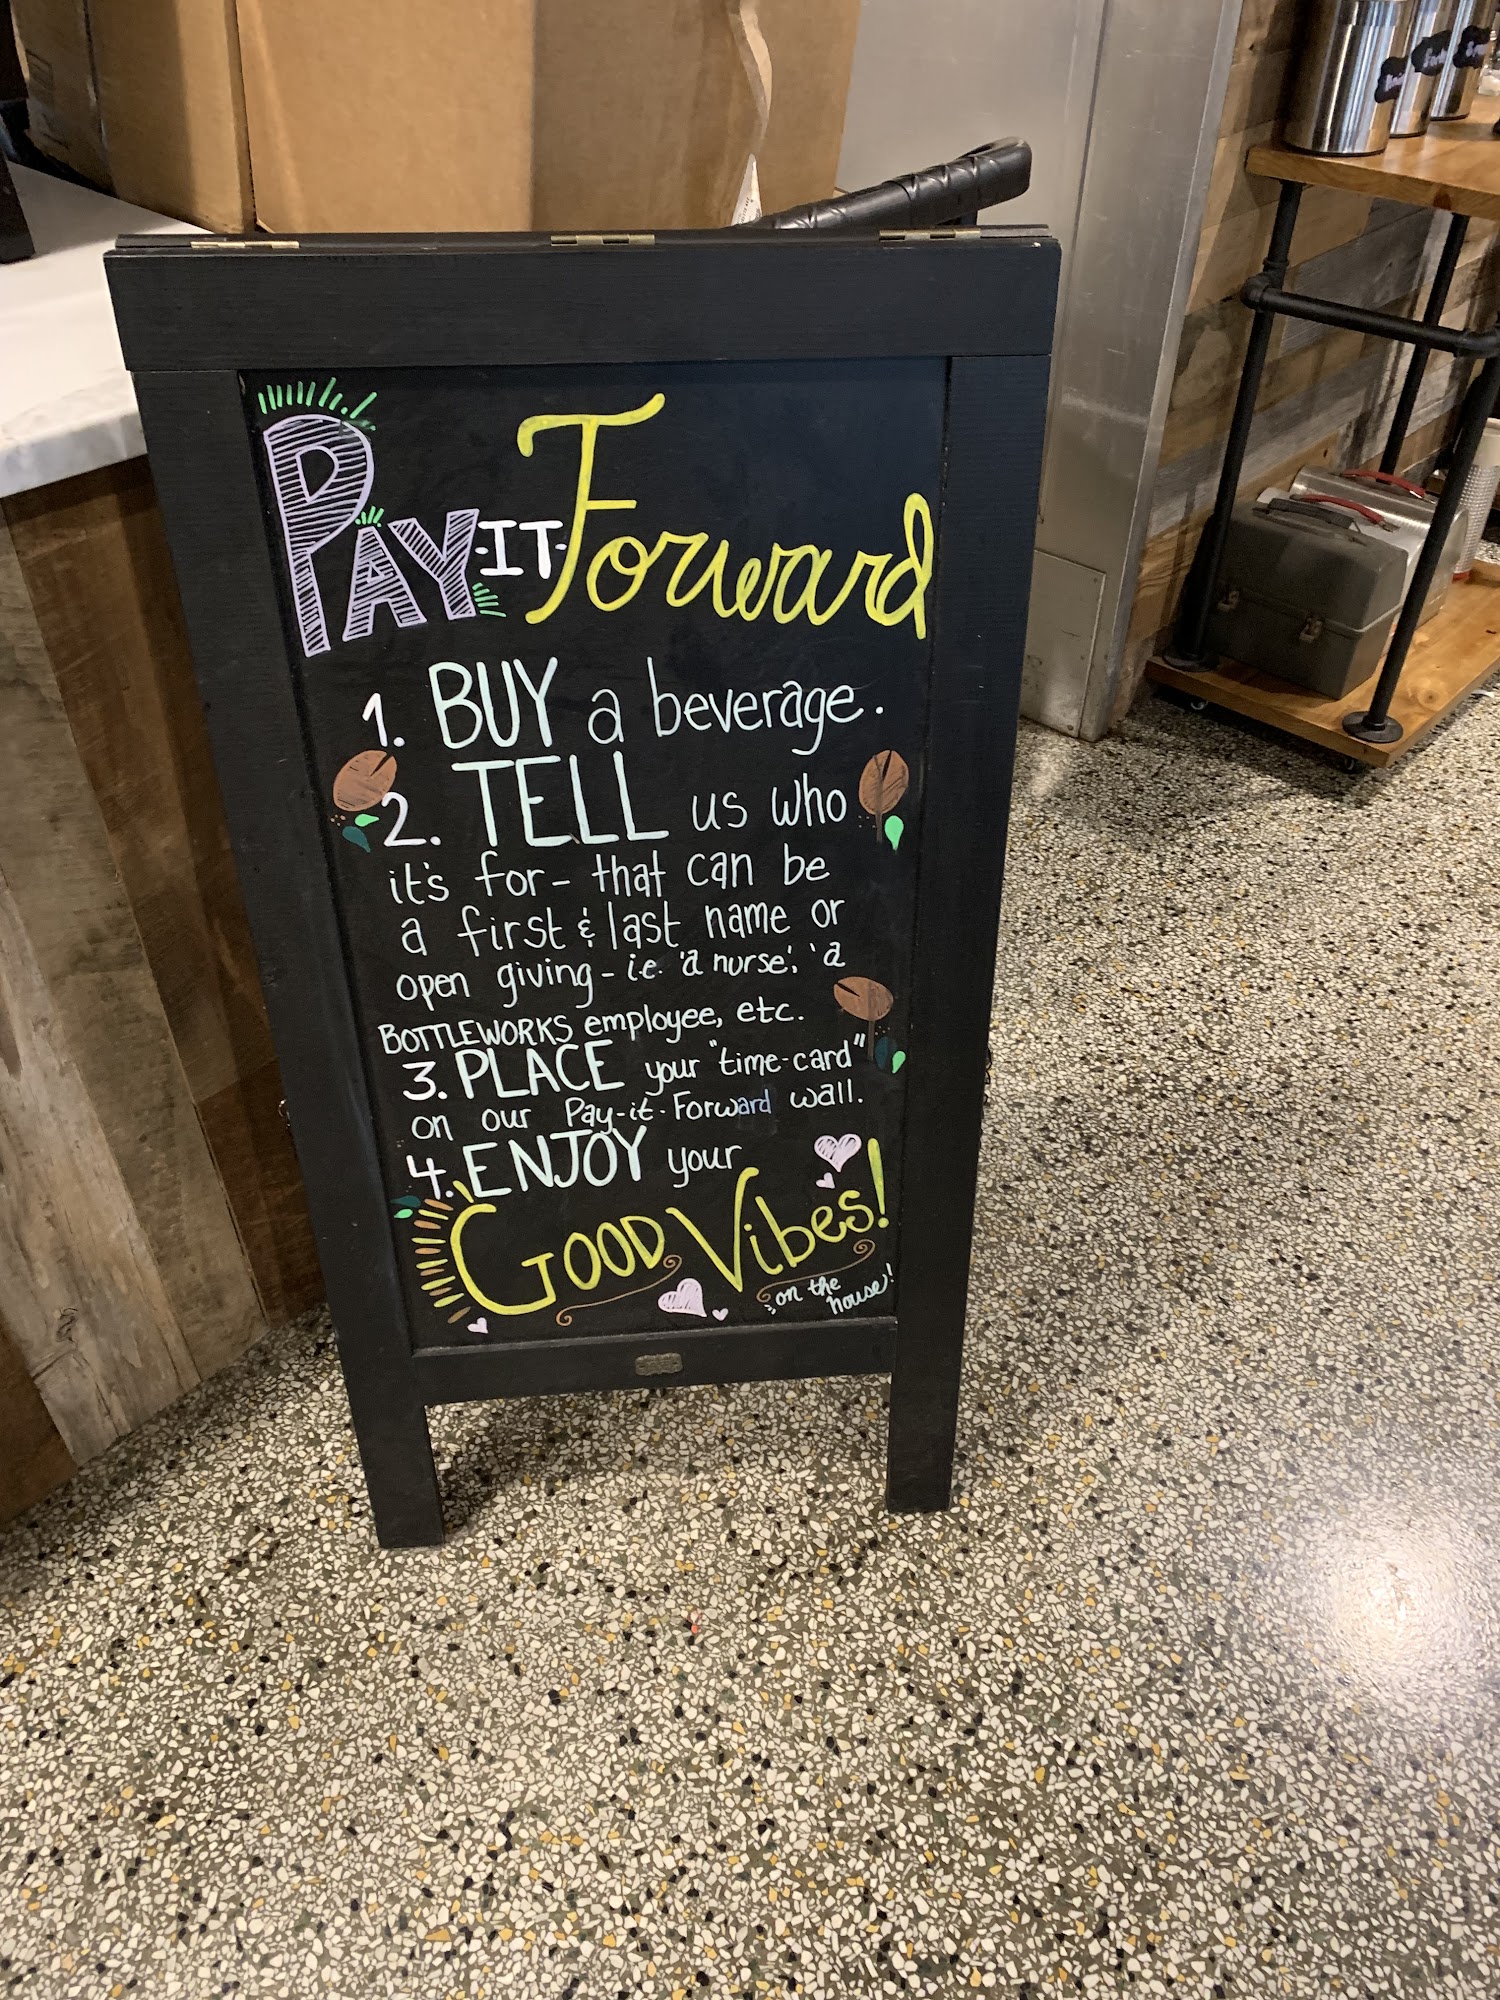 PAY-IT-Forward
1. BUY a beverage.
2. TELL us who
it's for- that can be
a first & last name or
open giving - i.e. 'a nurse', 'a
BOTTLEWORKS employee, etc.
3. PLACE your "time-card"
on our Pay-it-Forward wall.
4. ENJOY your
GOOD Vibes!
on the
house!